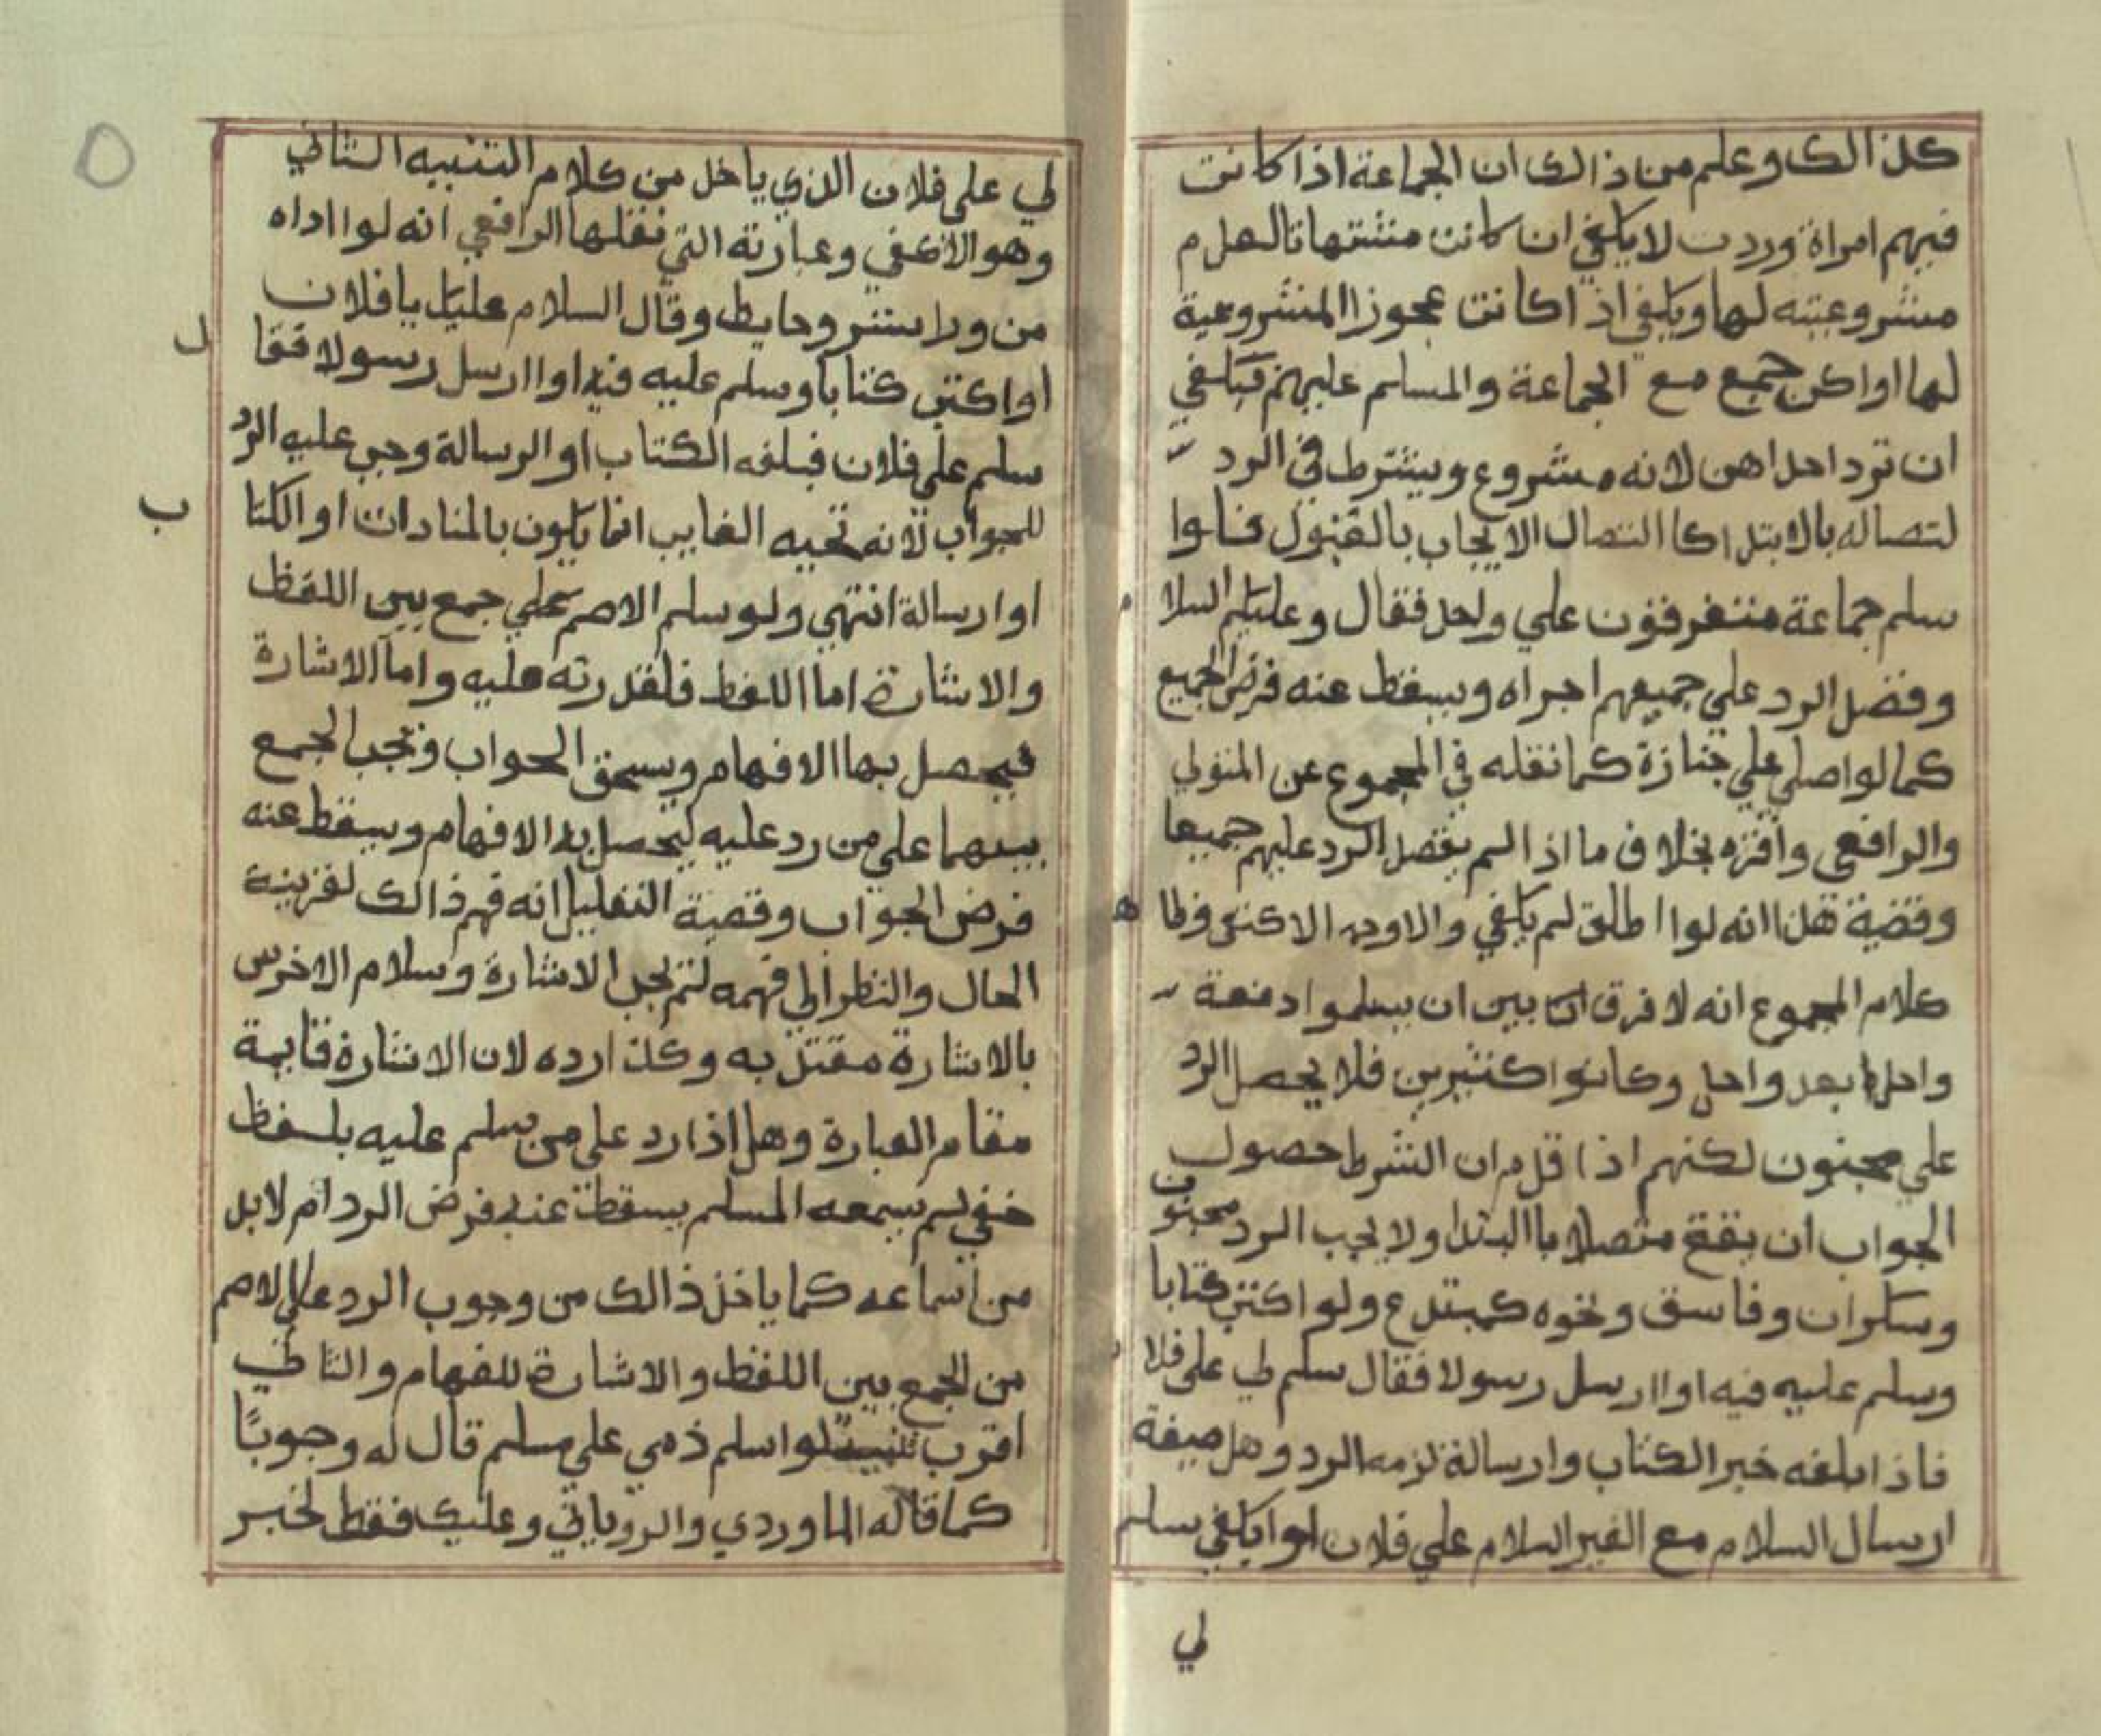 كذالك وعلم من ذالك ان الجماعة اذا كانت
فيهم امراة وردت لا يكفي ان كانت مشتهاتا لعدم
مشروعيته لها ويكفي اذا كانت عجوزا المشروعية
لها او اكن جمع مع الجماعة والمسلم عليهم فيكفي
ان ترد احداهن لانه مشروع ويشترط في الرد
لتصاله بالابتدا كا التصال الايجاب بالقبول فلوا
سلم جماعة متفرقون علي واحد فقال وعليكم السلام
وقصد الرد علي جميعهم اجراه ويسقط عنه فرض الجميع
كما لوا صلي علي جنازة كما نقله في المجموع عن المتولي
والرافعي واقره بخلاف ما اذا لم يقصد الرد عليهم جميعا
وقضية هذا انه لوا اطلق لم يكفي والاوجه الاكتفى وظاه
كلام المجموع انه لا فرق بين ان يسلموا دفعة
واحدا بعد واحد وكانوا كثيرين فلا يحصل الرد
علي مجنون لكنهم اذا قدم ان الشرط حصول
الجواب ان يقع متصلا باالبتدا ولا يجب الرد مجنون
وسكران وفاسق ونحوه كمبتدع ولو اكتب كتابا
وسلم عليه فيه اوا ارسل رسولا فقال سلم لي على فلان
فاذا بلغه خبر الكتاب وارسالة لزمه الرد وهل صيغة
ارسال السلام مع الغير السلام علي فلان اوا يكفي سلم
لي
لي على فلان الذي ياخذ من كلام التنبيه الثاني
وهو الاكفي وعبارته التي نقلها الرافعي انه لوا اداه
من ورا ستر وحايط وقال السلام عليك يا فلان
اوا كتب كتابا وسلم عليه فيه اوا ارسل رسولا فقال
سلم على فلان فبلغه الكتاب او الرسالة وجب عليه الرد
للجواب لانه تحيه الغايب انما يكون بالمنادات او الكتاب
اوا رسالة انتهي ولو سلم الاصم علي جمع بين اللفظ
والاشارة اما اللفظ فلقدرته عليه واما الاشارة
فيحصل بها الافهام ويستحق الجواب وتجب الجمع
بينهما على من رد عليه ليحصل به الافهام ويسقط عنه
فرض الجواب وقضية التعليل انه فهم ذالك لقرينة
الحال والنظر الي فهمه لتم تجب الاشارة وسلام الاخرس
بالاشارة مقتد به وكذا رده لان الاشارة قايمة
مقام العبارة وهل اذا رد على من سلم عليه بلفظ
خفي لم يسمعه المسلم يسقط عنه فرض الرد ام لا بد
من اسماعه كما ياخذ ذالك من وجوب الرد على الاصم
من الجمع بين اللفظ والاشارة للفهام والثاني
اقرب تنبيه لوا سلم ذمي علي مسلم قال له وجوبًا
كما قاله الماوردي والروياني وعليك فقط لخبر